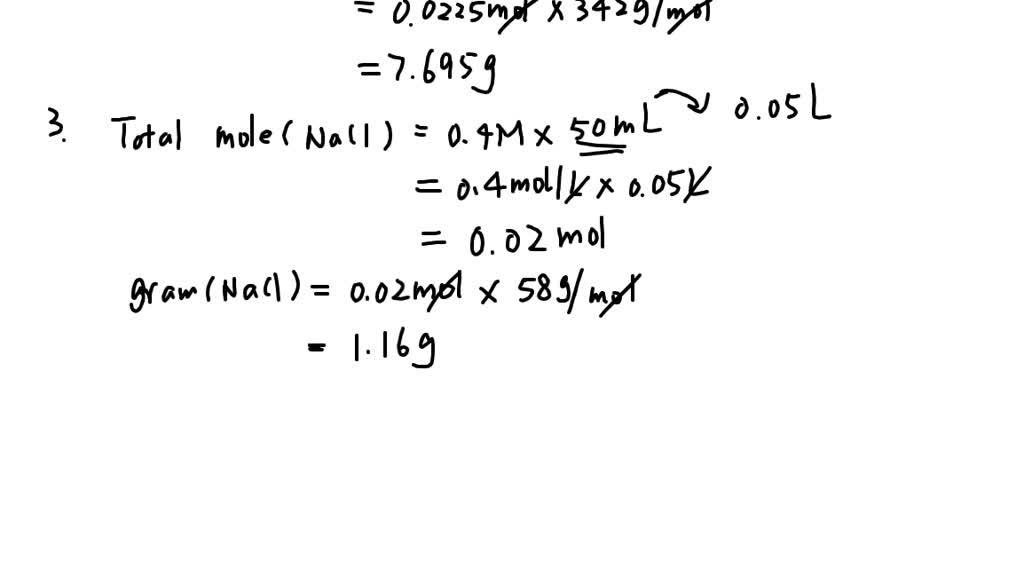 = 0.0225mol x 342g/mol
= 7.695g
3. Total mole(NaCl) = 0.4M x 50mL 0.05L
= 0.4mol/L x 0.05L
= 0.02mol
gram(NaCl) = 0.02mol x 58g/mol
= 1.16g